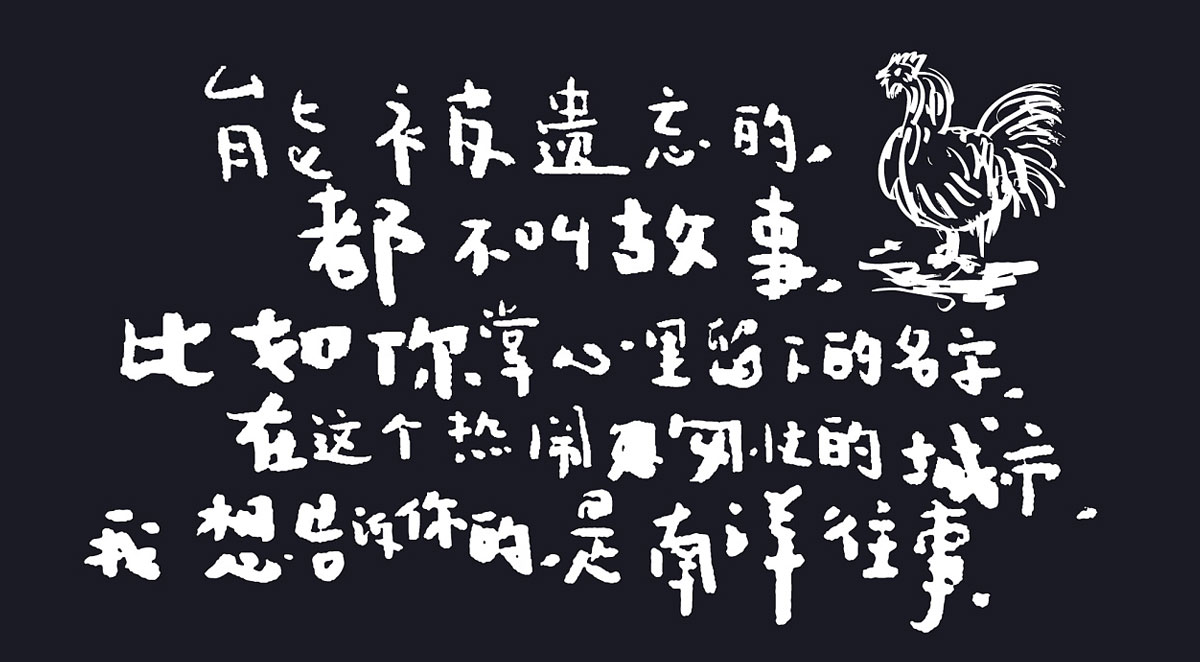 能被遗忘的,
都不叫故事.
比如你掌心里留下的名字.
在这个热闹又匆忙的城市.
我想告诉你的.是南洋往事.